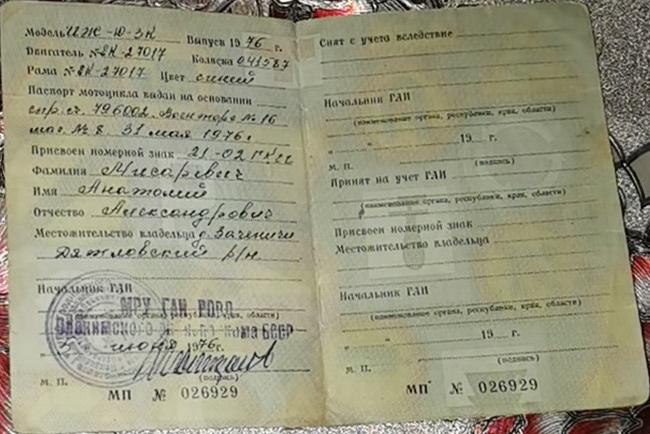 Модель ИЖ-Ю-3К Выпуск 1976 г.
Двигатель № 2К-27017 Коляска 041587
Рама № 2К-27017 Цвет синий
Паспорт мотоцикла выдан на основании
спр. сч. 796002. Военторг № 16
маг. № 8. 31 мая 1976 г.
Присвоен номерной знак 21-02
Фамилия Мисаревич
Имя Анатолий
Отчество Александрович
Местожительство владельца д. Заченичи
Дятловский р/н
Начальник ГАИ
МРУ ГАИ РОВД
БССР
июня 1976 г.
(подпись)
М. П.
МП № 026929
Снят с учета вследствие
Начальник ГАИ
(наименование органа, республики, края, области)
" " 19 г.
М. П. (подпись)
Принят на учет ГАИ
(наименование органа, республики, края, области)
Присвоен номерной знак
Местожительство владельца
Начальник ГАИ
(наименование органа, республики, края, области)
" " 19 г.
М. П. (подпись)
МП № 026929